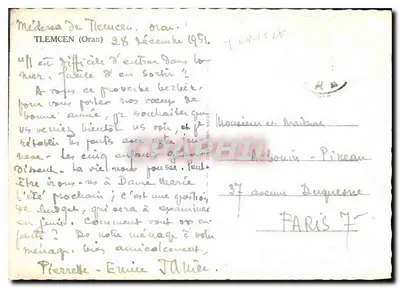 Médersa de Tlemcen. Oran.
TLEMCEN (Oran) 28 Décembre 1951.
"Il est difficile d'entrer dans
facile d'en sortir"
A vous ce proverbe berbère
pour vous porter nos vœux de
bonne année, je souhaiterais que
vous veniez bientôt us voir, et je
rétablir les ponts avec notre
Les cinq enfants
disent. La vie nous pousse. Peut-
être irons-ns à Dame Marie
l'été prochain ; c'est une question
de budget, qui sera à examiner
en juin. Comment vont vos en-
fants ? De notre ménage à votre
ménage, très amicalement,
Pierrette - Emile
Monsieur et Madame
Pineau
37 avenue Duquesne
PARIS 7e